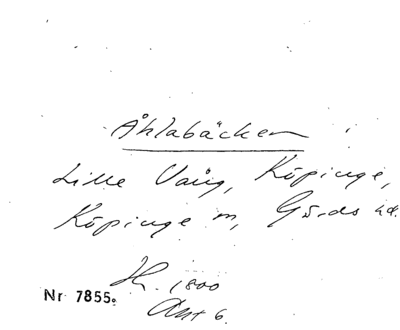 Åhlabäcken
Lille Vång, Köpinge,
Köpinge sn, Gärds hd.
1800
Nr 7855.
Akt 6